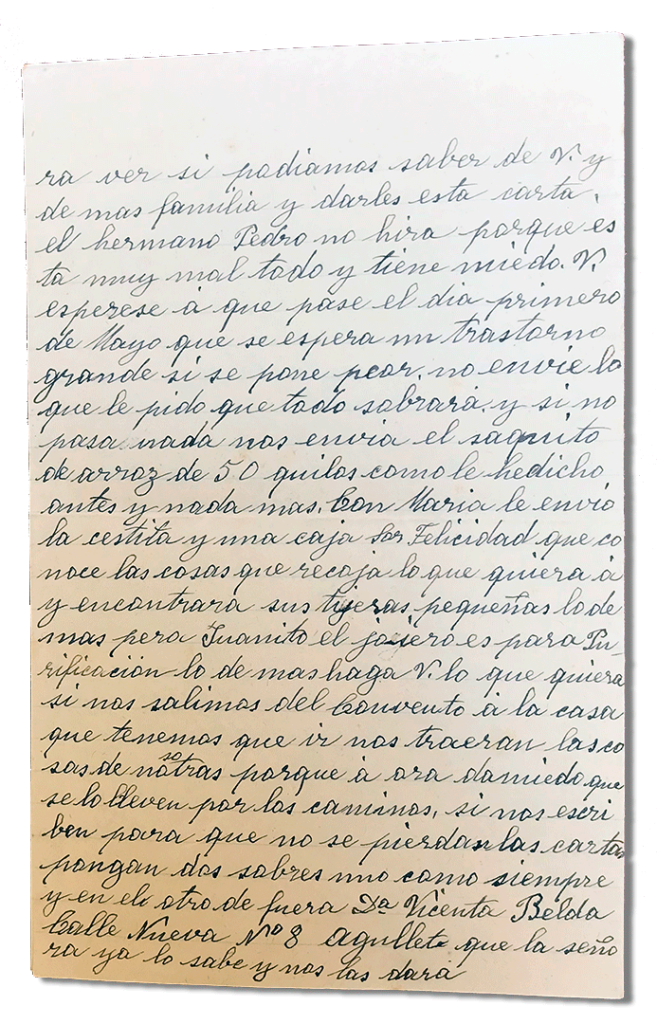 ra ver si podiamos saber de V. y
de mas familia y darles esta carta,
el hermano Pedro no hira porque es
ta muy mal todo y tiene miedo. V.
esperese à que pase el dia primero
de Mayo que se espera un trastorno
grande si se pone peor, no envie lo
que le pido que todo sobrará, y si no
pasa nada nos envia el saquito
de arroz de 50 quilos como le hedicho
antes y nada mas. Con Maria le envio
la cestita y una caja Sor Felicidad que co
noce las cosas que recoja lo que quiera à
y encontrara sus tijeras pequeñas lo de
mas pera Juanito el joyero es para Pu-
rificación lo de mas haga V. lo que quiera
si nos salimos del Convento à la casa
que tenemos que ir nos traeran las co
sas de nosotras porque à ora da miedo que
se lo lleven por los caminos, si nos escri
ben para que no se pierdan las cartas
pongan dos sobres uno como siempre
y en el otro de fuera Dª Vicenta Belda
Calle Nueva Nº 8 Agullet que la seño
ra ya lo sabe y nos las dará